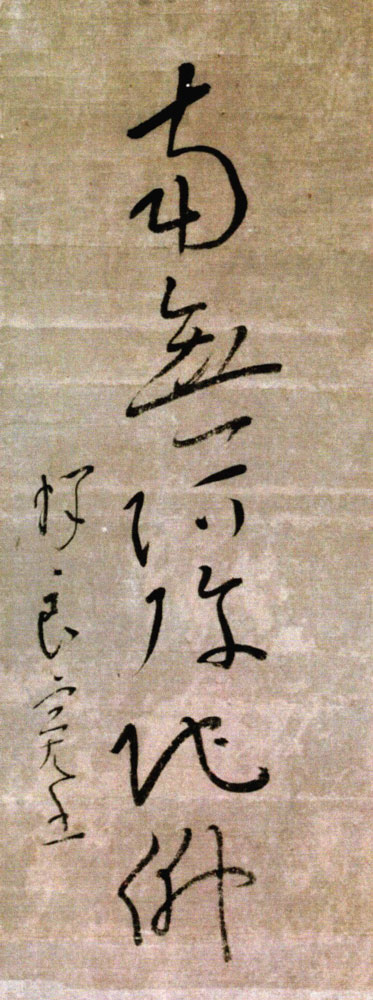 南無阿弥陀佛
釋良寛書